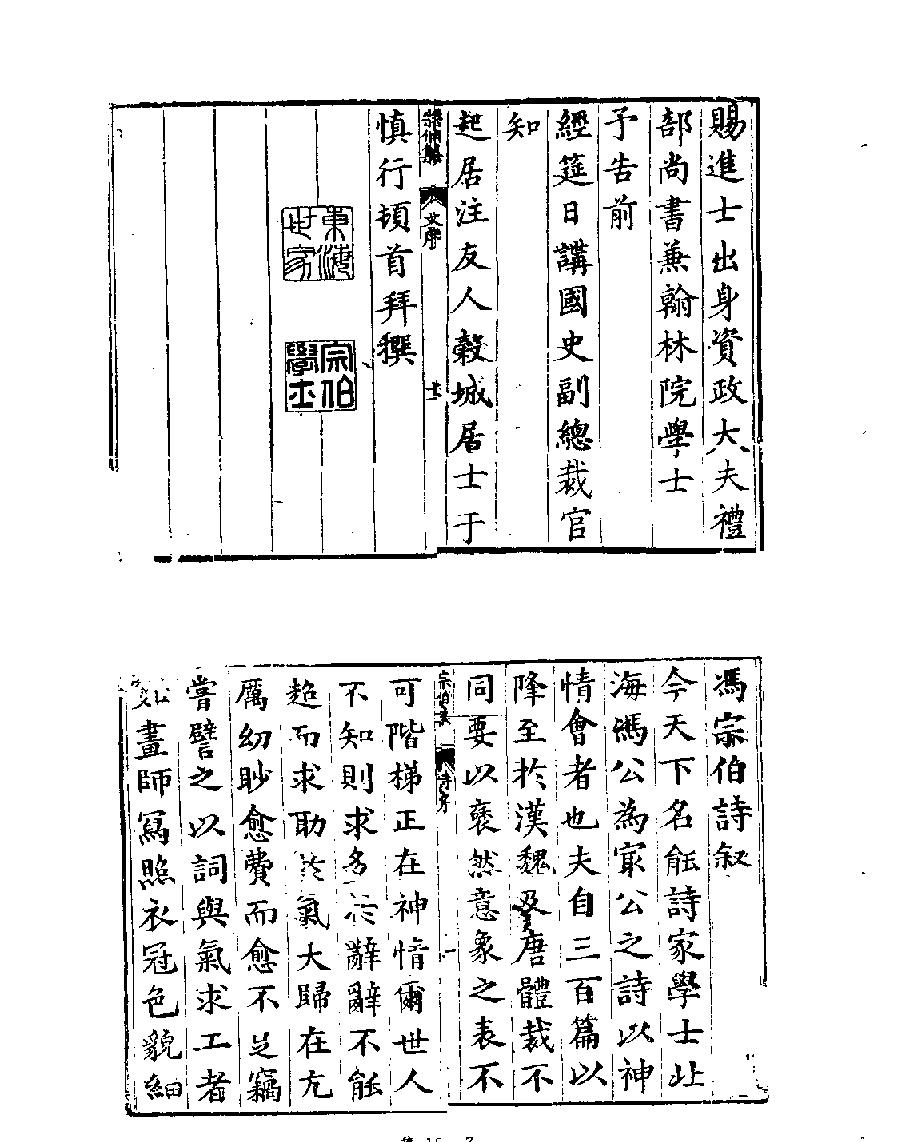 賜進士出身資政大夫禮
部尚書兼翰林院學士
予告前
經筵日講國史副總裁官
知
起居注友人穀城居士于
文序
士
慎行頓首拜撰
東海世家
宗伯學士
馮宗伯詩叙
今天下名能詩家學士北
海馮公為冣公之詩以神
情會者也夫自三百篇以
降至扵漢魏及唐體裁不
同要以褎然意象之表不
宗伯集
詩序
一
可階梯正在神情爾世人
不知則求多扵辭辭不能
超而求助扵氣大歸在亢
厲幼眇愈費而愈不足竊
嘗譬之以詞與氣求工者
如畫師冩照衣冠色貌細